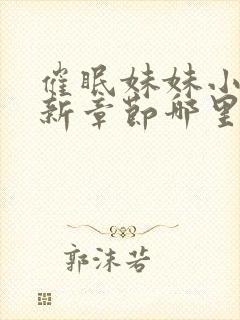 催眠妹妹小
新章节哪里
郭沫若